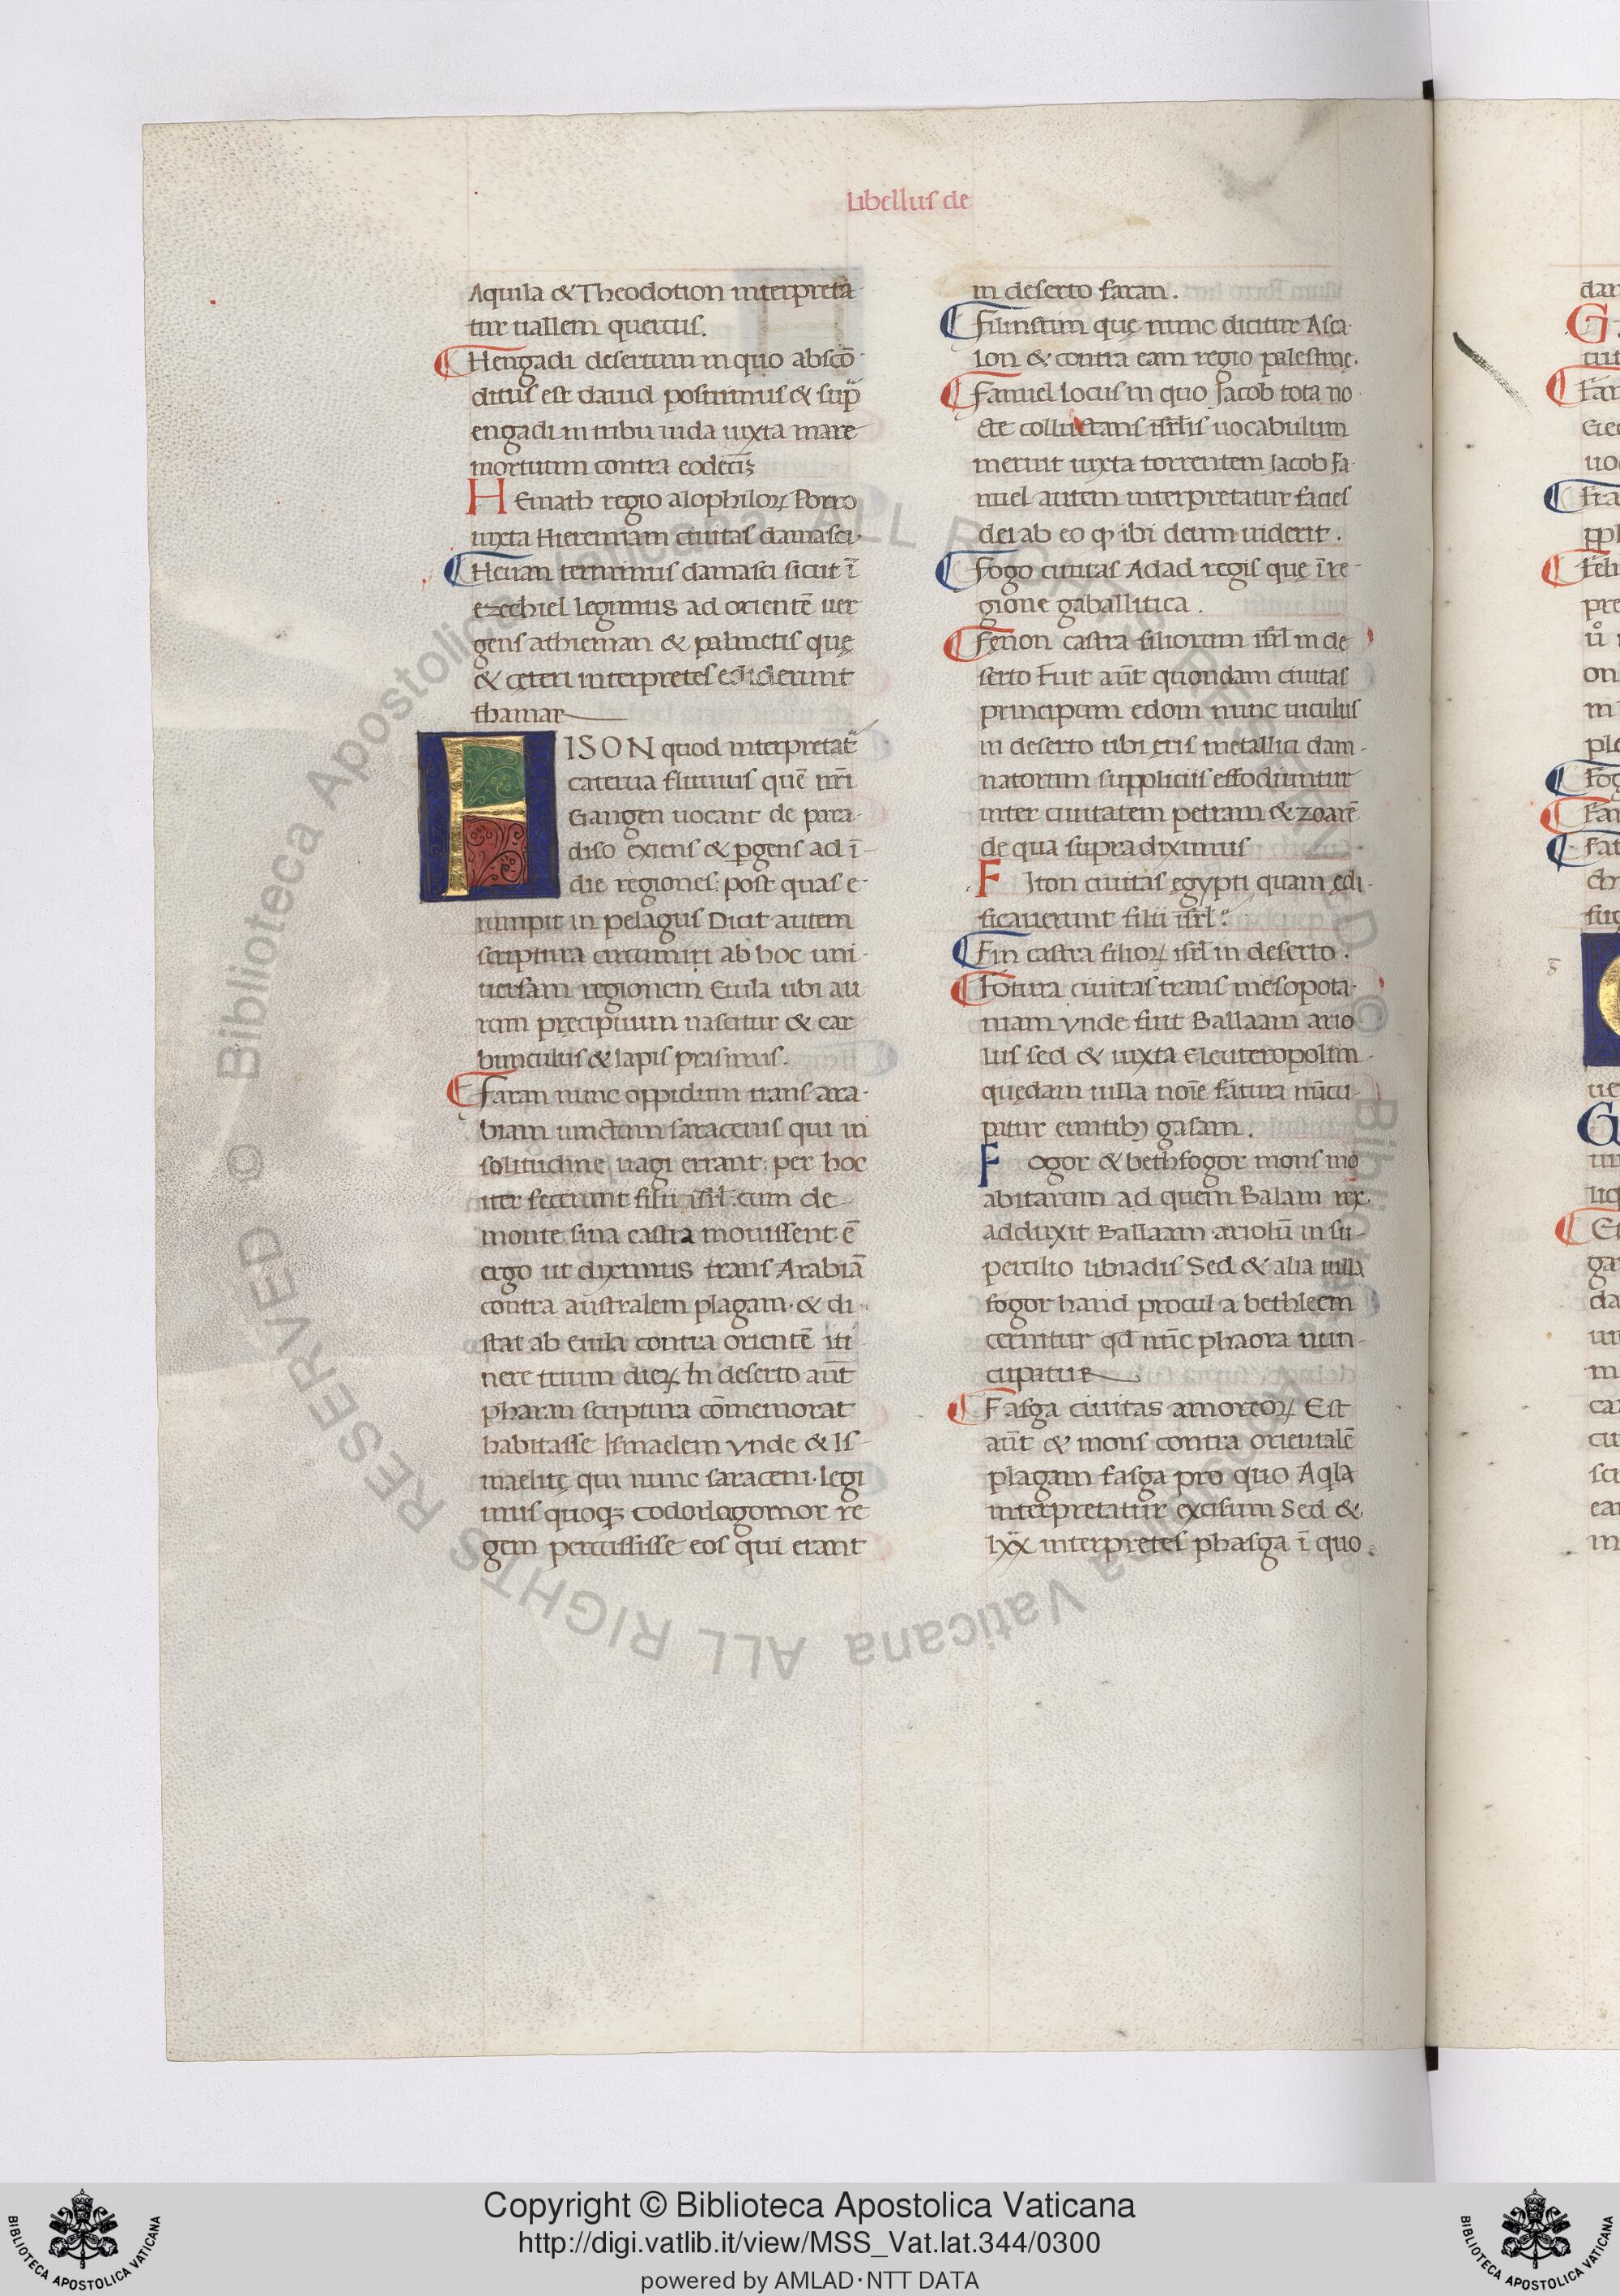 Libellus de
Aquila & Theodotion interpreta
tur uallem quercus.
Hengadi desertum in quo abscō
ditus est dauid postrimus & sup̄
engadi in tribu iuda iuxta mare
mortuum contra
HEmath regio alophiloꝝ Porro
iuxta Hieremiam ciuitas damasci.
Heuan terminus damasci sicut ī
ezechiel legimus ad orientē uer
gens athieman & palmetis quę
& cęteri interpretes ediderunt
thamar
FISON quod interpretat᷑
caterua fluuius quē nr̄i
Gangen uocant de para-
diso exiens & ꝑgens ad ī-
die regiones: post quas e-
rumpit in pelagus Dicit autem
scriptura circumiri ab hoc uni-
uersam regionem Euila ubi au
rum pręcipuum nascitur & car
bunculus & lapis prasinus.
Faran nunc oppidum trans ara-
biam iunctum saracenis qui in
solitudine uagi errant: per hoc
iter fecerunt filii isr̄l: cum de
monte sina castra mouissent: ē
ergo ut diximus trans Arabiā
contra australem plagam. & di-
stat ab euila contra orientē iti
nere trium dieꝝ In deserto aūt
pharan scriptura cōmemorat
habitasse Ismaelem vnde & Is-
maelitę qui nunc saraceni. legi
mus quoqꝫ codorlagomor re
gem percussisse eos qui erant
in deserto faran.
Filinstim quę nunc dicitur Asca-
lon & contra eam regio palestinę.
Fanuel locus in quo Jacob tota no-
cte colluctans isrl̄is uocabulum
meruit iuxta torrentem Jacob Fa-
nuel autem interpretatur facies
dei ab eo ꝙ ibi deum uiderit.
Fogo ciuitas Adad regis quę ī re-
gione gaballitica.
Fenon castra filiorum isr̄l in de
serto Fuit aūt quondam ciuitas
principum edom nunc uiculus
in deserto ubi ęris metallici dam-
natorum suppliciis effodiuntur
inter ciuitatem petram & zoarē
de qua supra diximus
FIton ciuitas ęgypti quam ędi-
ficauerunt filii isr̄l.
Fin castra filioꝝ isr̄l in deserto.
Fotura ciuitas trans mesopota-
miam vnde fuit Ballaam ario
lus sed & iuxta Eleuteropolim
quędam uilla noīe fatura nūcu-
patur euntibꝫ gasam.
Fogor & bethfogor mons mo
abitarum ad quem Balam rex
adduxit Ballaam ariolū in su-
percilio libiadis Sed & alia uilla
fogor haud procul a bethleem
cernitur qd̄ nūc phaora nun-
cupatur
Fasga ciuitas amorreoꝝ Est
aūt & mons contra orientalē
plagam fasga pro quo Aq̇la
interpretatur excisum Sed &
lxx interpretes phasga ī quo
Copyright © Biblioteca Apostolica Vaticana
http://digi.vatlib.it/view/MSS_Vat.lat.344/0300
powered by AMLAD·NTT DATA